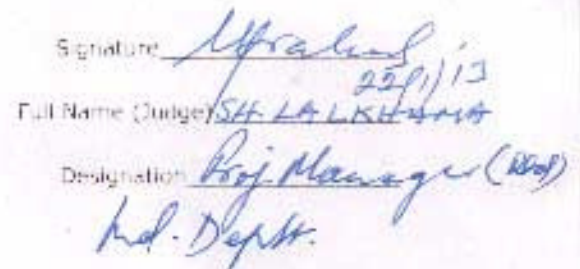 Signature
22/1/13
Full Name (Judge) SH. LALKHAMA
Designation Proj Manager
Ind. Deptt.